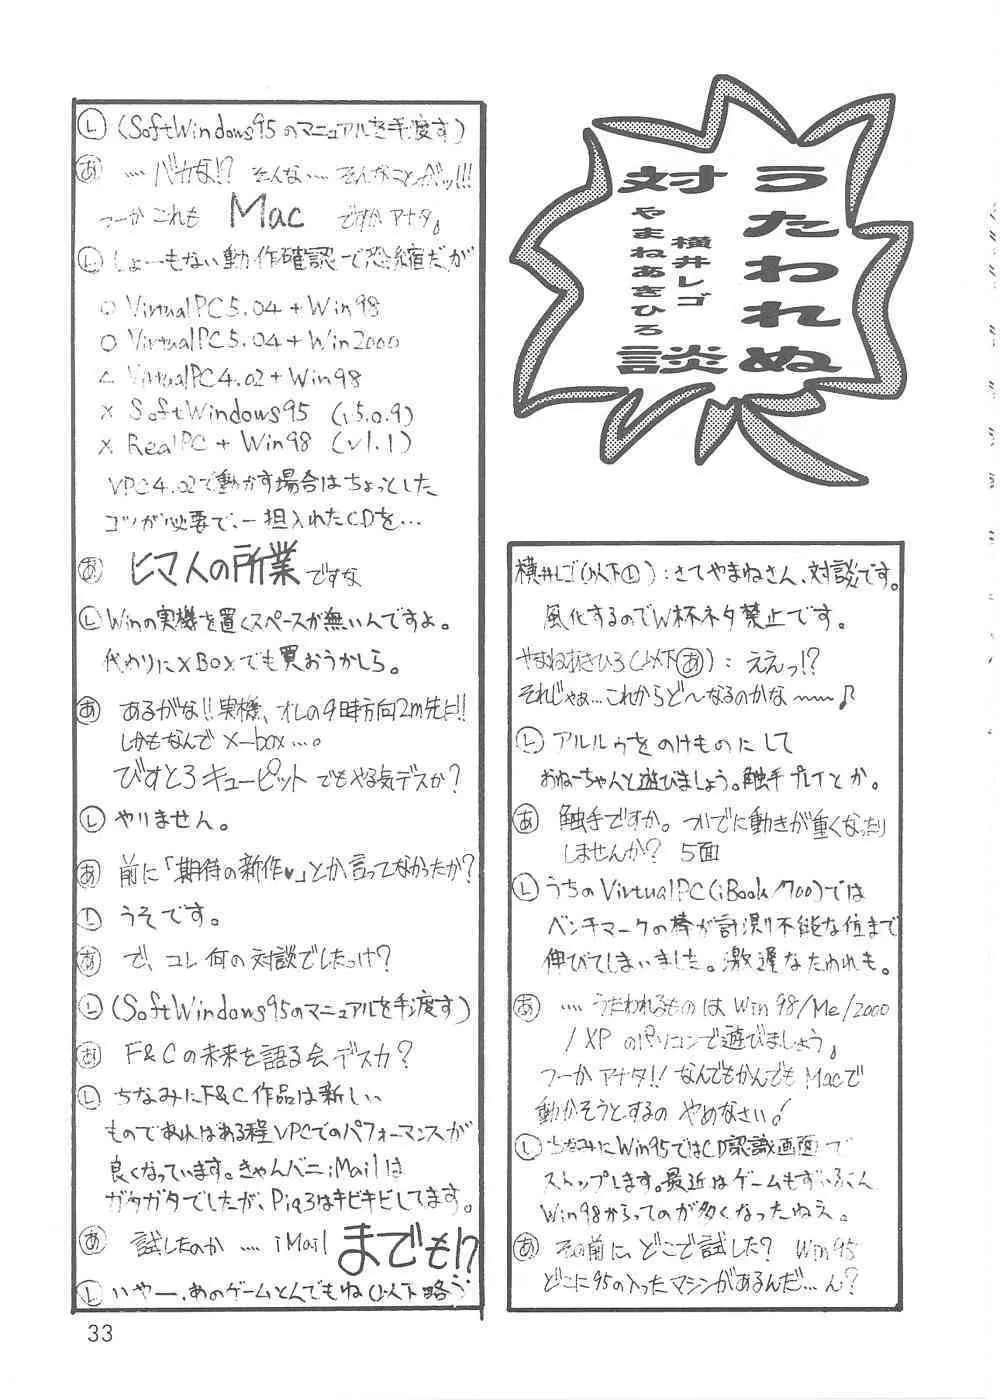 うたわれぬ
対談
横井レゴ
やまねあきひろ
横井レゴ(以下Ⓛ):さてやまねさん、対談です。
風化するのでW杯ネタ禁止です。
やまねあきひろ(以下あ):ええっ!?
それじゃぁ…これからど〜なるのかな〜〜♪
Ⓛ アルルゥをのけものにして
おねーちゃんと遊びましょう。触手プレイとか。
あ 触手ですか。ついでに動きが重くなったり
しませんか? 5面
Ⓛ うちのVirtualPC(iBook/700)では
ベンチマークの棒が計測不能な位まで
伸びてしまいました。激遅なたわれも。
あ ….. うたわれるものは Win 98/Me/2000
/XP のパソコンで遊びましょう。
つーか アナタ!! なんでもかんでも Macで
動かそうとするの やめなさい!
Ⓛ ちなみにWin95ではCD認識画面で
ストップします。最近はゲームもずいぶん
Win98からってのが多くなったねえ。
あ その前に、どこで試した? Win95
どこに95の入ったマシンがあるんだ…ん?
Ⓛ (SoftWindows95のマニュアルを手渡す)
あ …. バカな!? そんな…. そんなことがッ!!!
つーか これも Mac ですか アナタ。
Ⓛ しょーもない動作確認で恐縮だが
○ VirtualPC5.04+Win98
○ VirtualPC5.04+Win2000
△ VirtualPC4.02+Win98
× SoftWindows95 (v5.0.9)
× RealPC+Win98 (v1.1)
VPC4.02で動かす場合はちょっとした
コツが必要で、一担入れたCDを…
あ ヒマ人の所業ですな
Ⓛ Winの実機を置くスペースが無いんですよ。
代わりにxBoxでも買おうかしら。
あ あるがな!!実機、オレの9時方向2m先に!!
しかもなんで x-box….。
びすとろキューピット でもやる気デスか?
Ⓛ やりません。
あ 前に「期待の新作♥」とか言ってなかったか?
Ⓛ うそです。
あ で、コレ何の対談でしたっけ?
Ⓛ (SoftWindows95のマニュアルを手渡す)
あ F&Cの未来を語る会デスカ?
Ⓛ ちなみにF&C作品は新しい
ものであればある程VPCでのパフォーマンスが
良くなっています。きゃんバニiMailは
ガタガタでしたが、Pia3はキビキビしてます。
あ 試したのか …. iMail までも!?
Ⓛ いやー、あのゲームとんでもね(以下略)
33